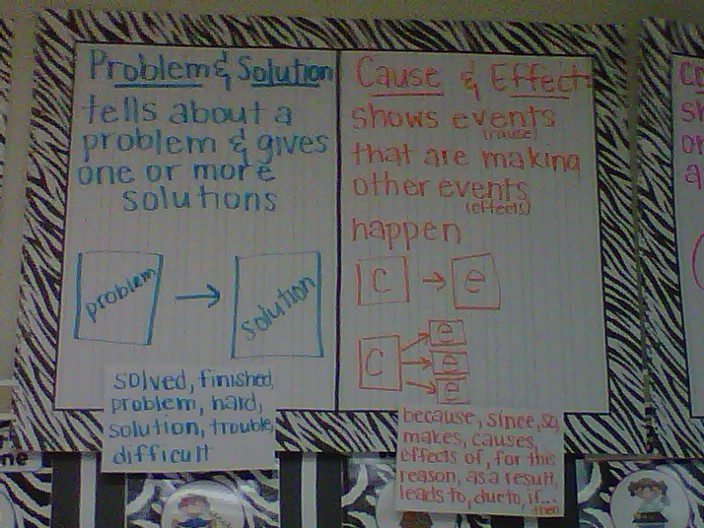 Problem & Solution
tells about a
problem & gives
one or more
solutions
problem
solution
solved, finished,
problem, hard,
solution, trouble,
difficult
Cause & Effect:
shows events
(cause)
that are making
other events
(effects)
happen
C
e
C
e
e
e
because, since, so,
makes, causes,
effects of, for this
reason, as a result,
leads to, due to, if...
then